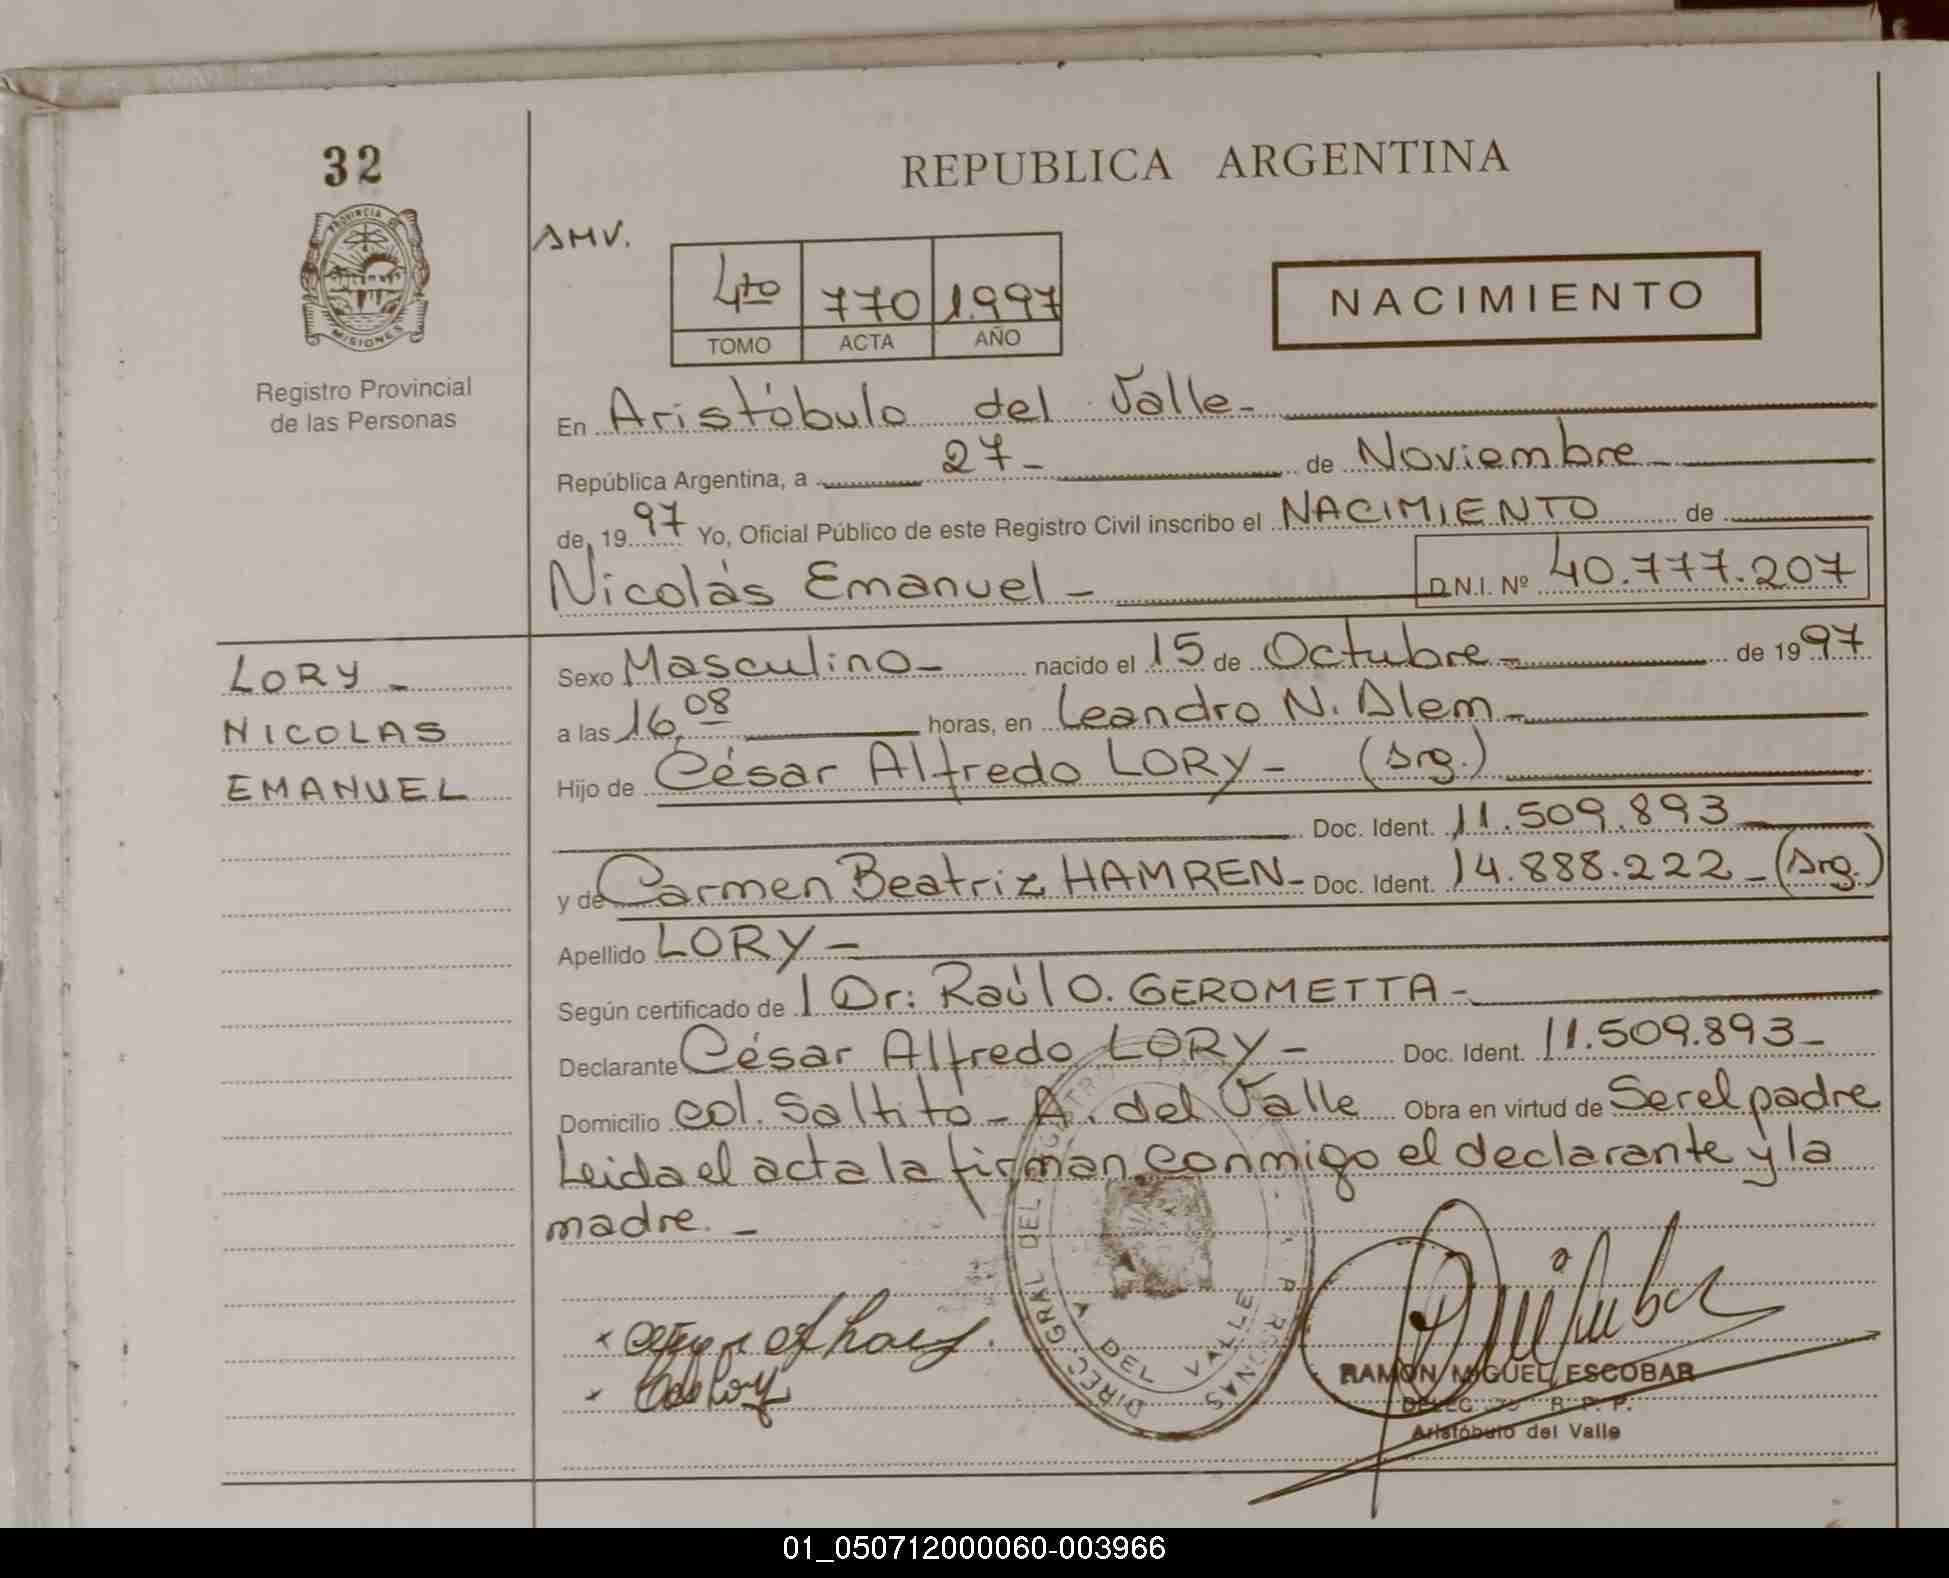 32
PROVINCIA DE
MISIONES
Registro Provincial
de las Personas
REPUBLICA ARGENTINA
AMV.
4to 770 1.997
TOMO ACTA AÑO
NACIMIENTO
En Aristóbulo del Valle-
República Argentina, a 27- de Noviembre
de 1997 Yo, Oficial Público de este Registro Civil inscribo el NACIMIENTO de
Nicolás Emanuel - D.N.I. Nº 40.777.207
LORY -
NICOLAS
EMANUEL
Sexo Masculino- nacido el 15 de Octubre- de 1997
a las 16,08 horas, en Leandro N. Alem-
Hijo de César Alfredo LORY- (Arg.)
Doc. Ident. 11.509.893
y de Carmen Beatriz HAMREN- Doc. Ident. 14.888.222-(Arg.)
Apellido LORY-
Según certificado de 1 Dr: Raúl O. GEROMETTA-
Declarante César Alfredo LORY- Doc. Ident. 11.509.893-
Domicilio col. Saltito- A. del Valle Obra en virtud de Ser el padre
Leida el acta la firman conmigo el declarante y la
madre. -
DIREC. GRAL DEL
A DEL VALLE
RAMON MIGUEL ESCOBAR
R. P. P.
Aristóbulo del Valle
01_050712000060-003966